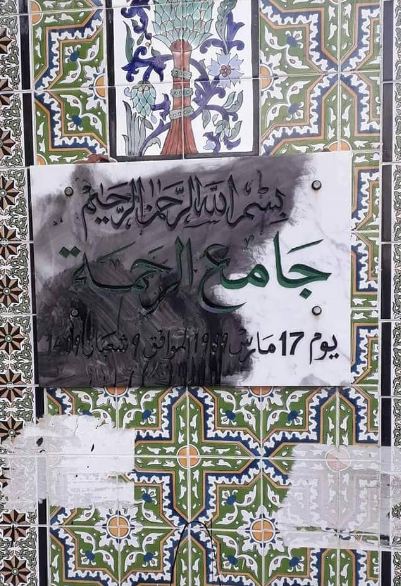 بسم الله الرحمن الرحيم
جامع الرحمة
يوم 17 مارس 1989 الموافق 9 شعبان 1409